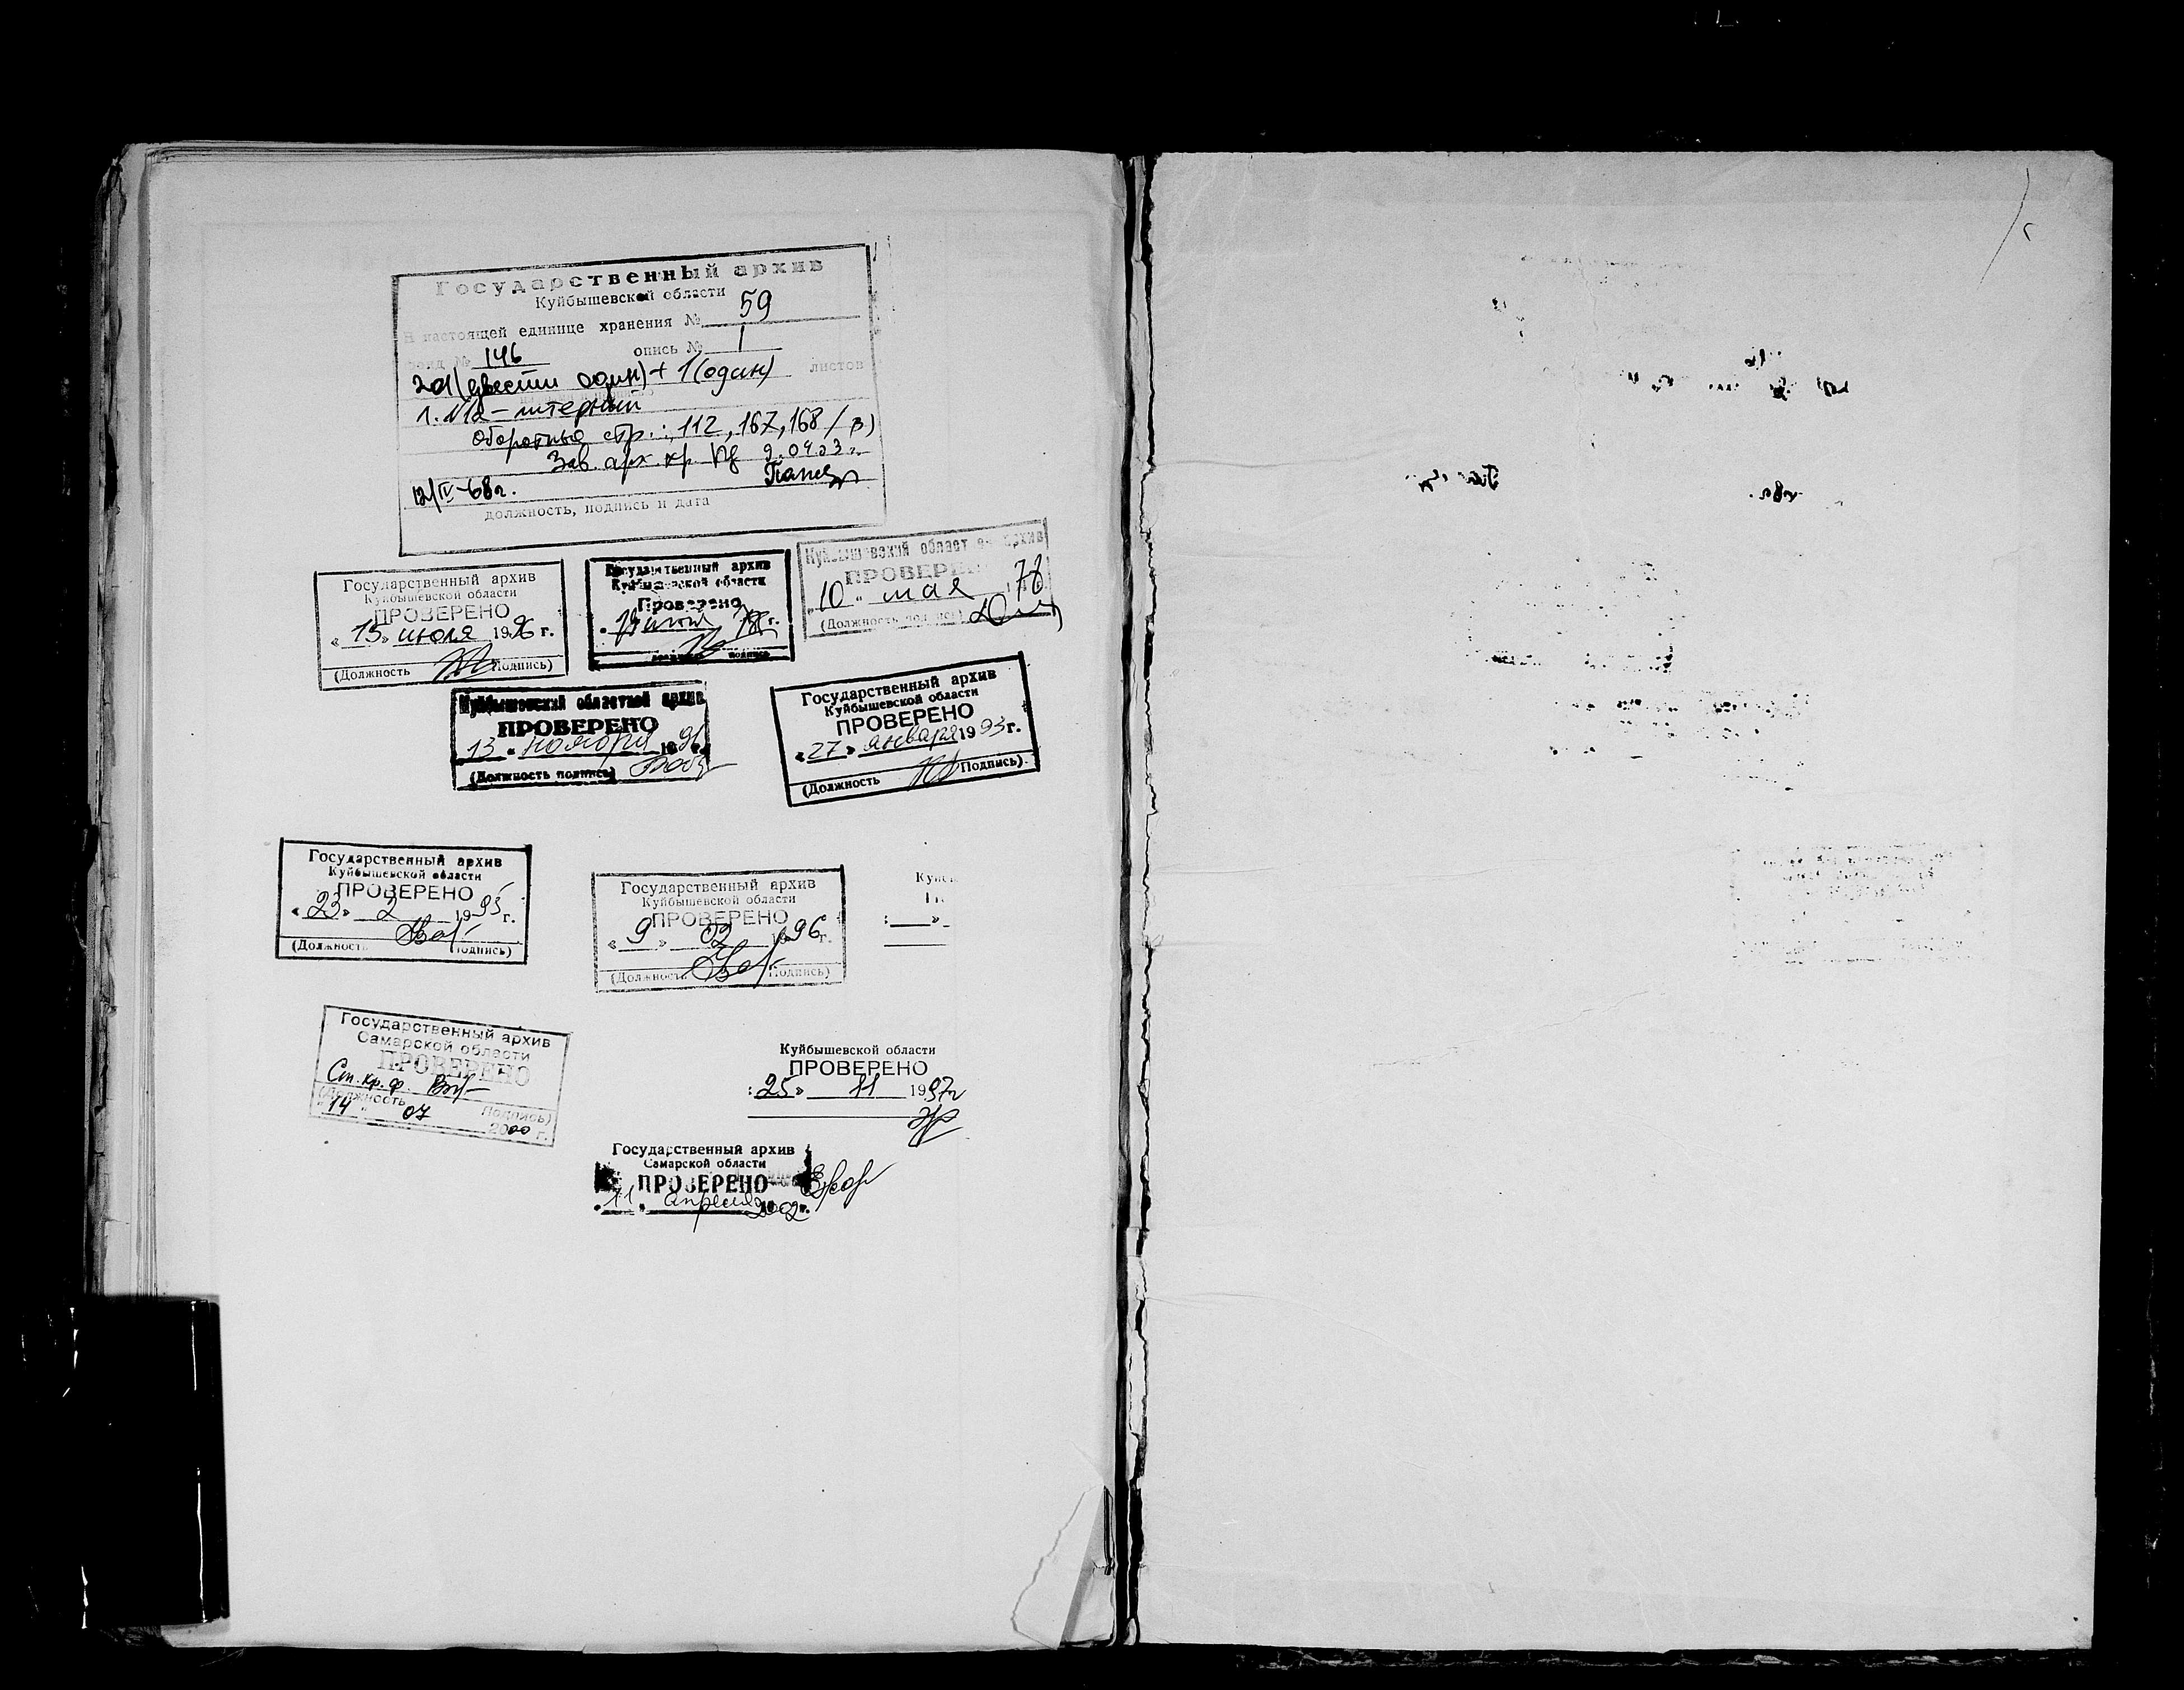 Государственный архив
Куйбышевской области
В настоящей единице хранения № 59
фонд № 146 опись № 1
201 (двести один) + 1 (один) листов
оборотные стр.: 112, 167, 168
Зав. арх. хр.
12/IV-68г.
должность, подпись и дата
Государственный архив
Куйбышевской области
ПРОВЕРЕНО
« 15 » июля 19 г.
(Должность Подпись)
Государственный архив
Куйбышевской области
Проверено
г.
должность подпись
Куйбышевский областной архив
ПРОВЕРЕНО
„ 10 “ мая 78
(Должность подпись)
Куйбышевский областной архив
ПРОВЕРЕНО
13 “ ноября 1991г.
(Должность подпись)
Государственный архив
Куйбышевской области
ПРОВЕРЕНО
« 27 » января 1993г.
(Должность Подпись).
Государственный архив
Куйбышевской области
ПРОВЕРЕНО
« 23 » 2 1995 г.
(Должность Подпись)
Государственный архив
Куйбышевской области
ПРОВЕРЕНО
« 9 » 02 1996г.
(Должность Подпись)
Государственный архив
Самарской области
ПРОВЕРЕНО
Ст. хр. ф.
(Должность Подпись)
" 14 " 07 2000 г.
Куйбышевской области
ПРОВЕРЕНО
: 25 » 11 1997г
Государственный архив
Самарской области
ПРОВЕРЕНО
„ 11 " апреля 2002г.